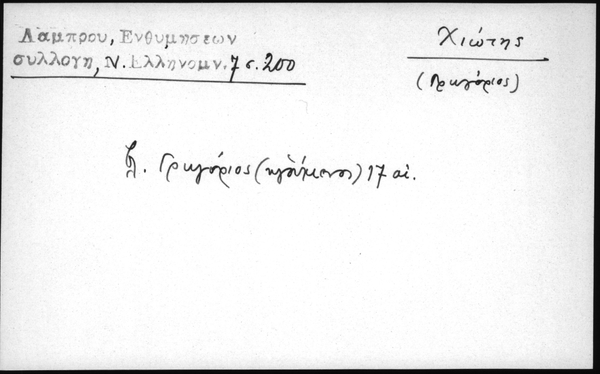 Λαμπρου, Ενθυμησεων
συλλογη, Ν. Ελληνομν. 7 σ. 200
Χιώτης
(Γρηγόριος)
Βλ. Γρηγόριος (ηγούμενος) 17 αἰ.